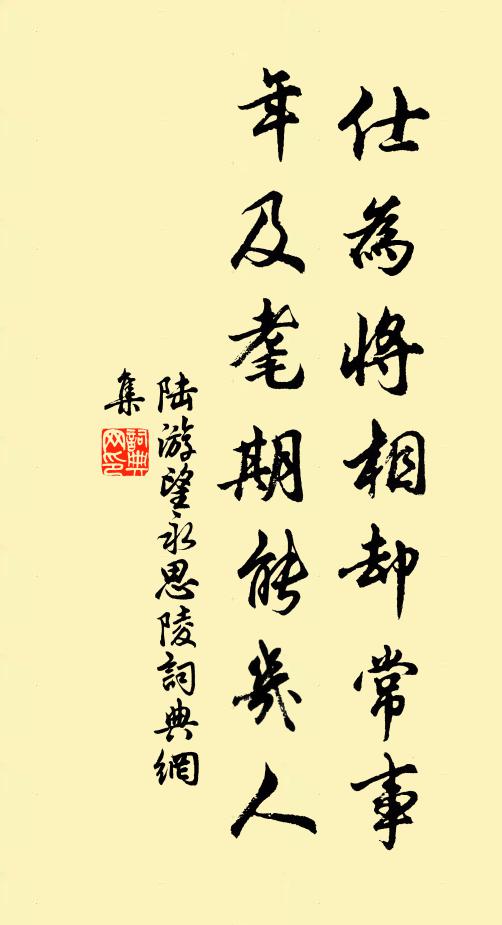 仕為將相却常事
年及耄期能幾人
陸游望永思陵詞典網
集
詞典网印